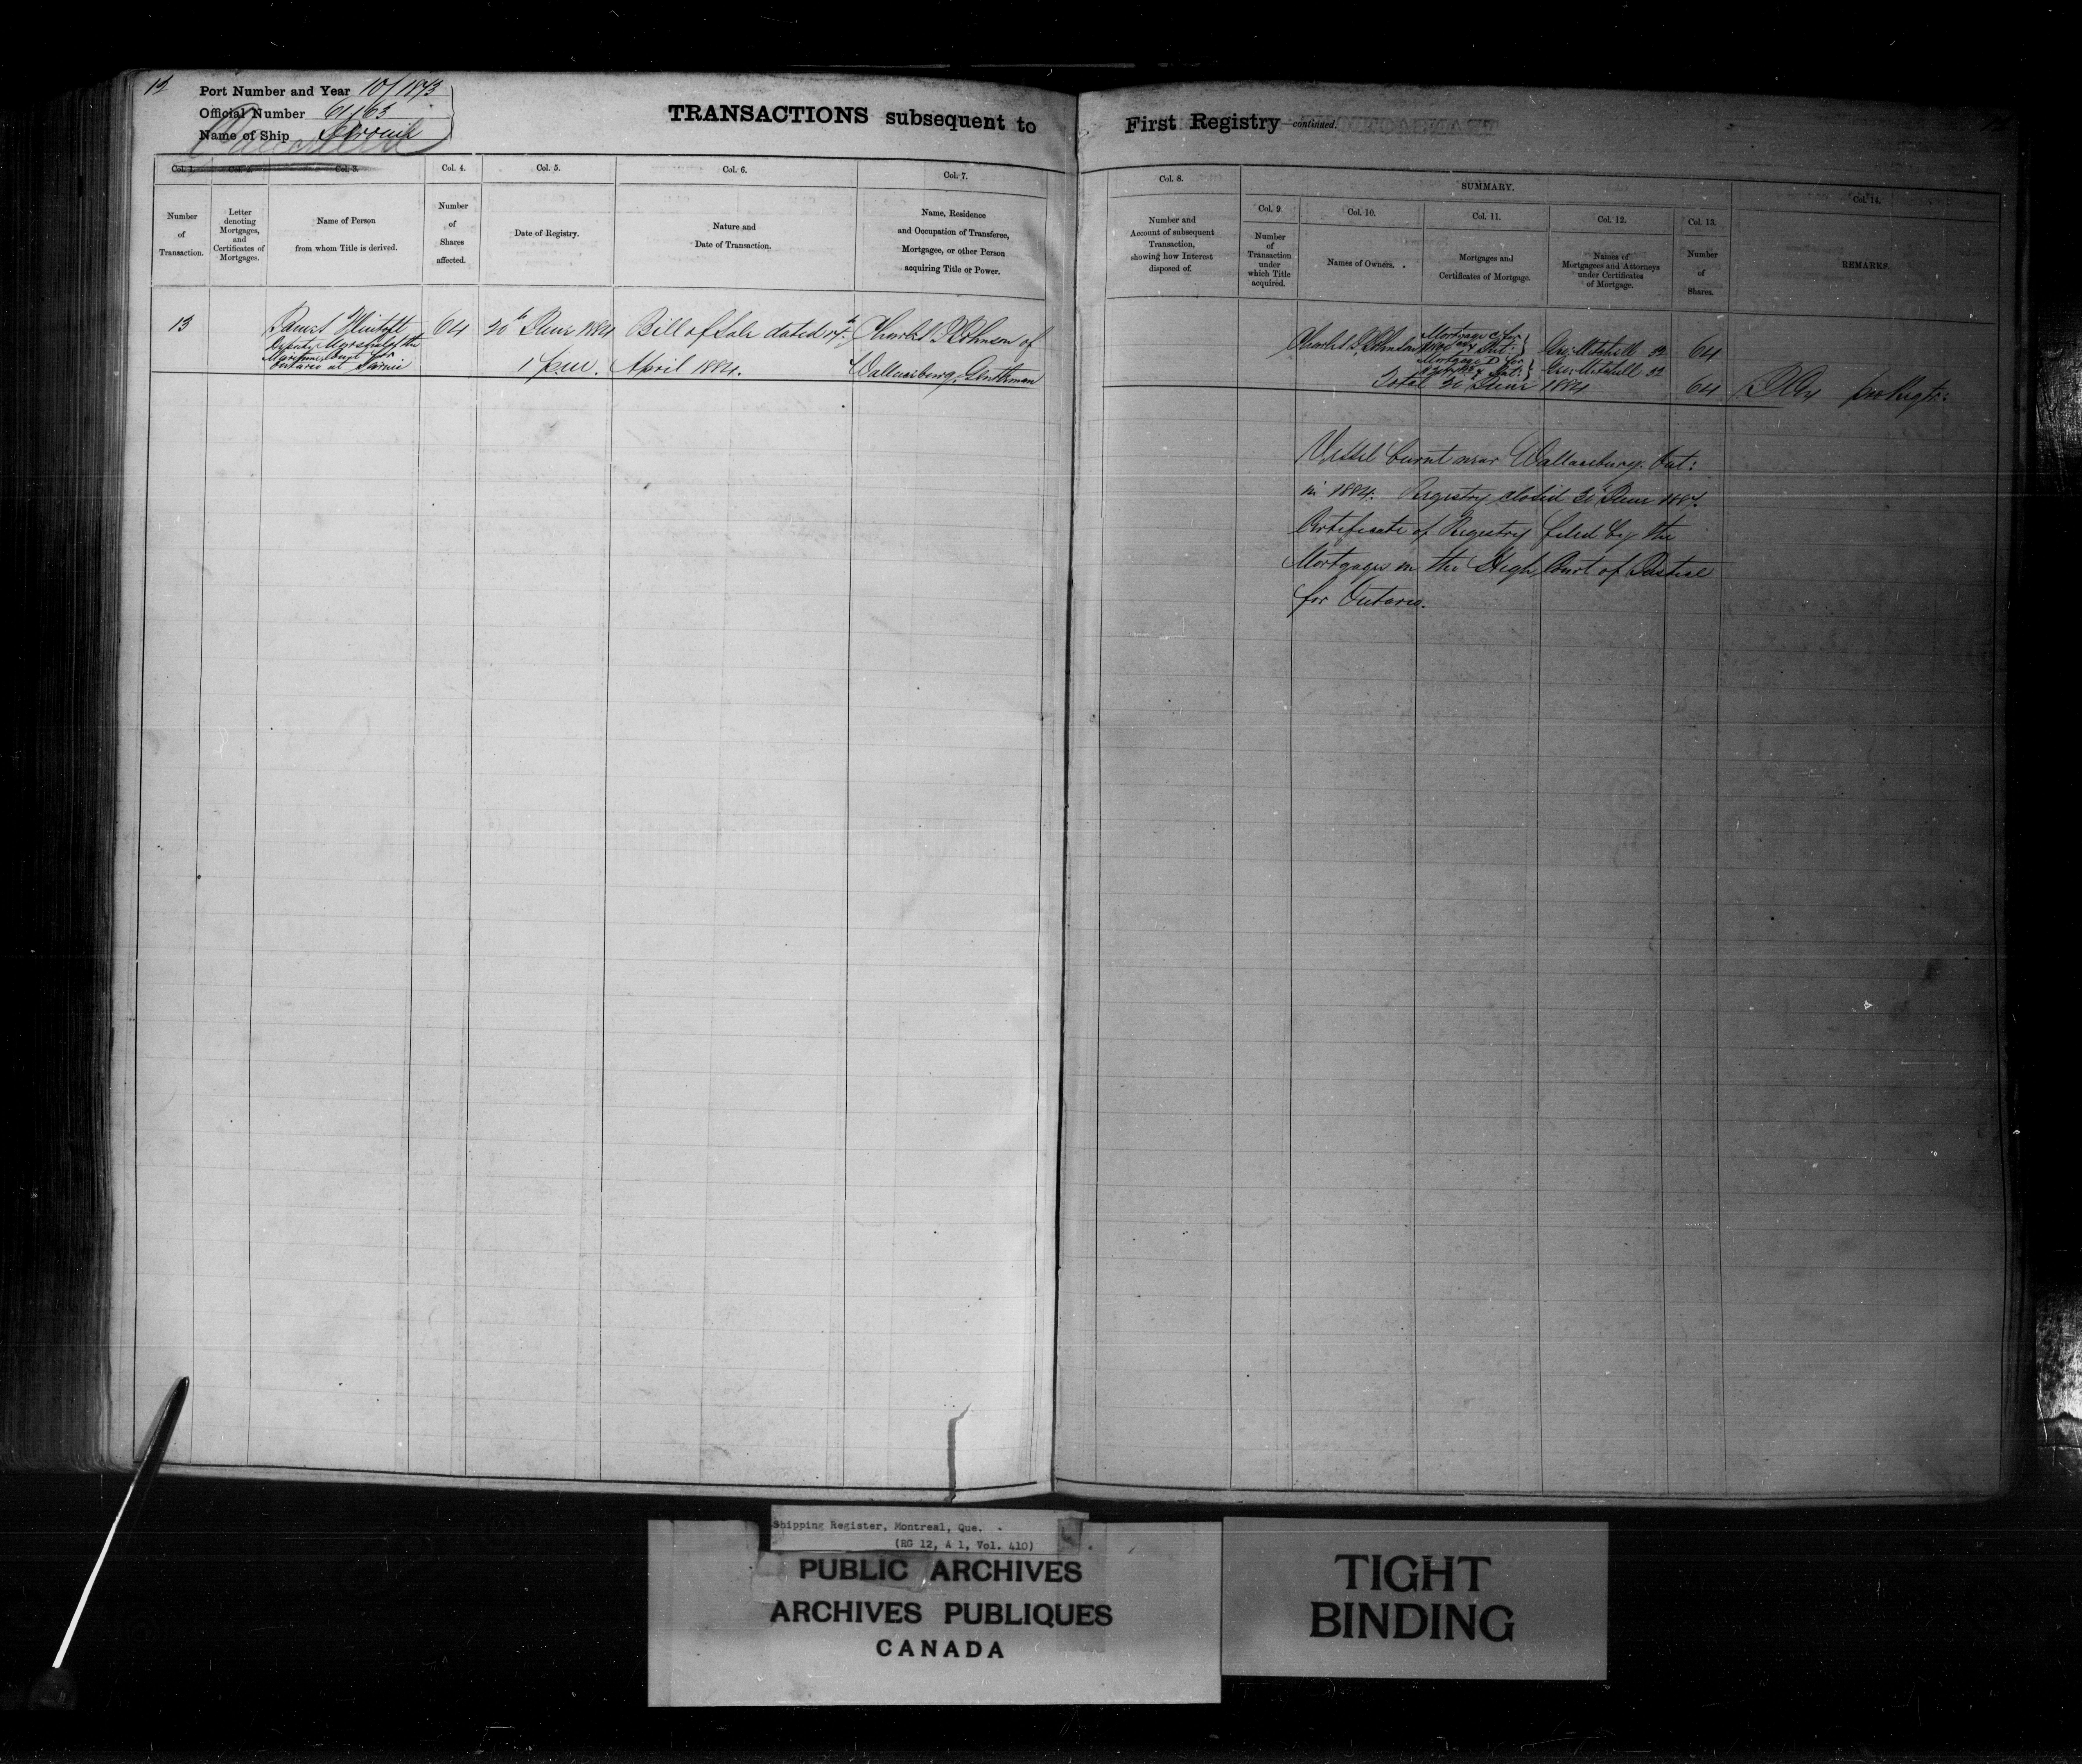 12
Port Number and Year 10/1873
Official Number 61163
Name of Ship
Cancelled
TRANSACTIONS subsequent to
First Registry—continued.
Col. 1. Col. 2. Col. 3. Col. 4. Col. 5. Col. 6. Col. 7.
Number of Transaction.
Letter denoting Mortgages, and Certificates of Mortgages.
Name of Person from whom Title is derived.
Number of Shares affected.
Date of Registry.
Nature and Date of Transaction.
Name, Residence and Occupation of Transferee, Mortgagee, or other Person acquiring Title or Power.
Col. 8.
Number and Account of subsequent Transaction, showing how Interest disposed of.
SUMMARY.
Col. 9. Col. 10. Col. 11. Col. 12. Col. 13. Col. 14.
Number of Transaction under which Title acquired.
Names of Owners.
Mortgages and Certificates of Mortgage.
Names of Mortgagees and Attorneys under Certificates of Mortgage.
Number of Shares.
REMARKS.
13
James
Deputy Marshal of the
Maritime Court for
Ontario at Sarnia
64
30th June 1884
1 p.m.
Bill of Sale dated 14th
April 1884.
Charles Johnson of
Wallaceburg, Gentleman
Charles Johnson
Mortgage C for
Int:
Geo: Mitchell 32
64
Mortgage D for
Int:
Geo: Mitchell 32
Total 30 June 1884
64
pro Regtr:
Vessel burnt near Wallaceburg. Ont:
in 1884. Registry closed 30 June 1884.
Certificate of Registry filed by the
Mortgagee in the High Court of Justice
for Ontario.
Shipping Register, Montreal, Que.
(RG 12, A 1, Vol. 410)
PUBLIC ARCHIVES
ARCHIVES PUBLIQUES
CANADA
TIGHT
BINDING